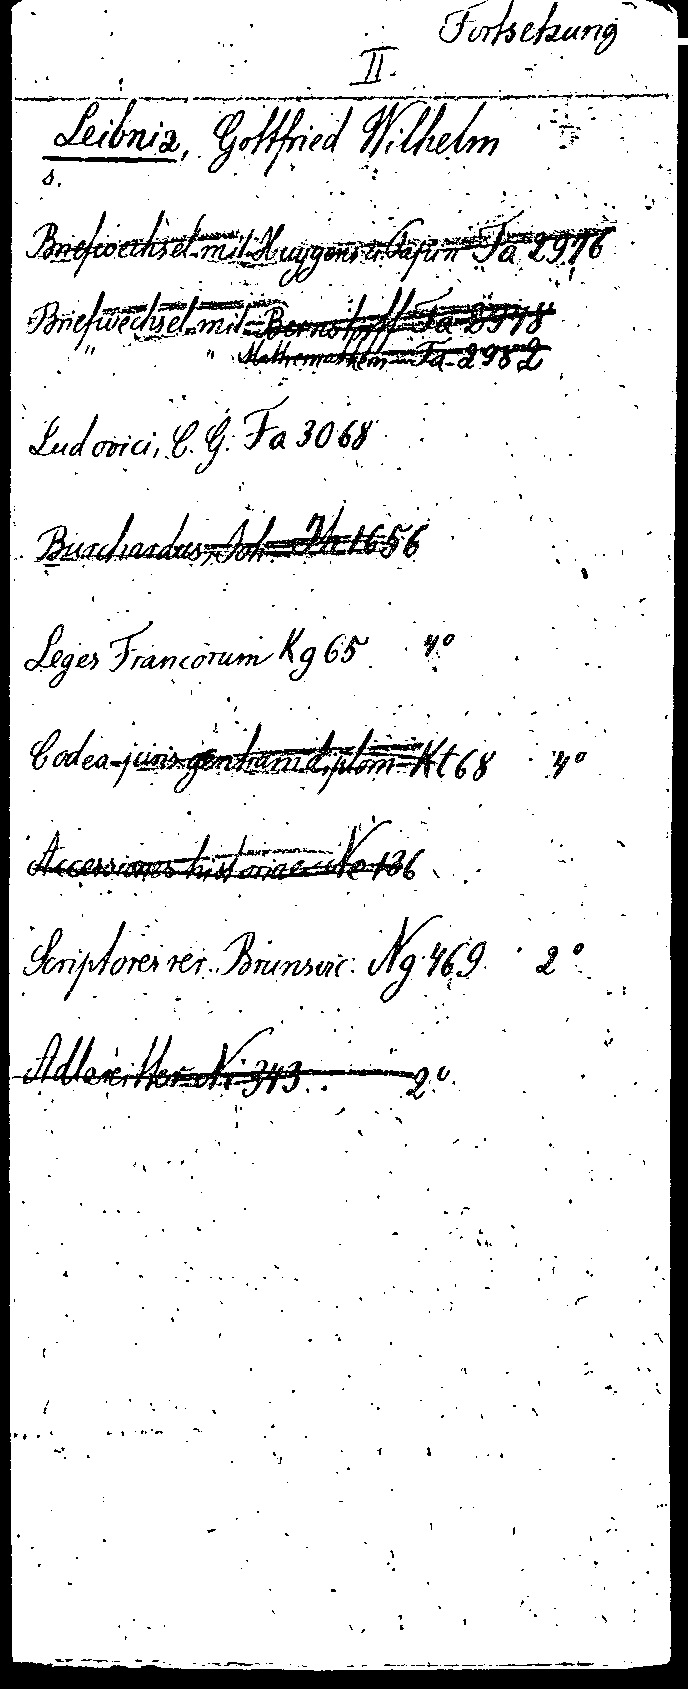 Fortsetzung
II.
Leibniz, Gottfried Wilhelm
s.
Briefwechsel mit Huygens u. Papin Fa 2976
Briefwechsel mit Bernstorff Fa 2978
" " Mathematikern Fa 2982
Ludovici, C. G. Fa 3068
Burchardus, Joh. 1656
Leges Francorum Kg 65 4°
Codex juris gentium diplom Kt 68 4°
Accessiones historicae Ne 136
Scriptores rer. Brunsvic. Ng 469 2°
Adlzreitter Ni 343 2°